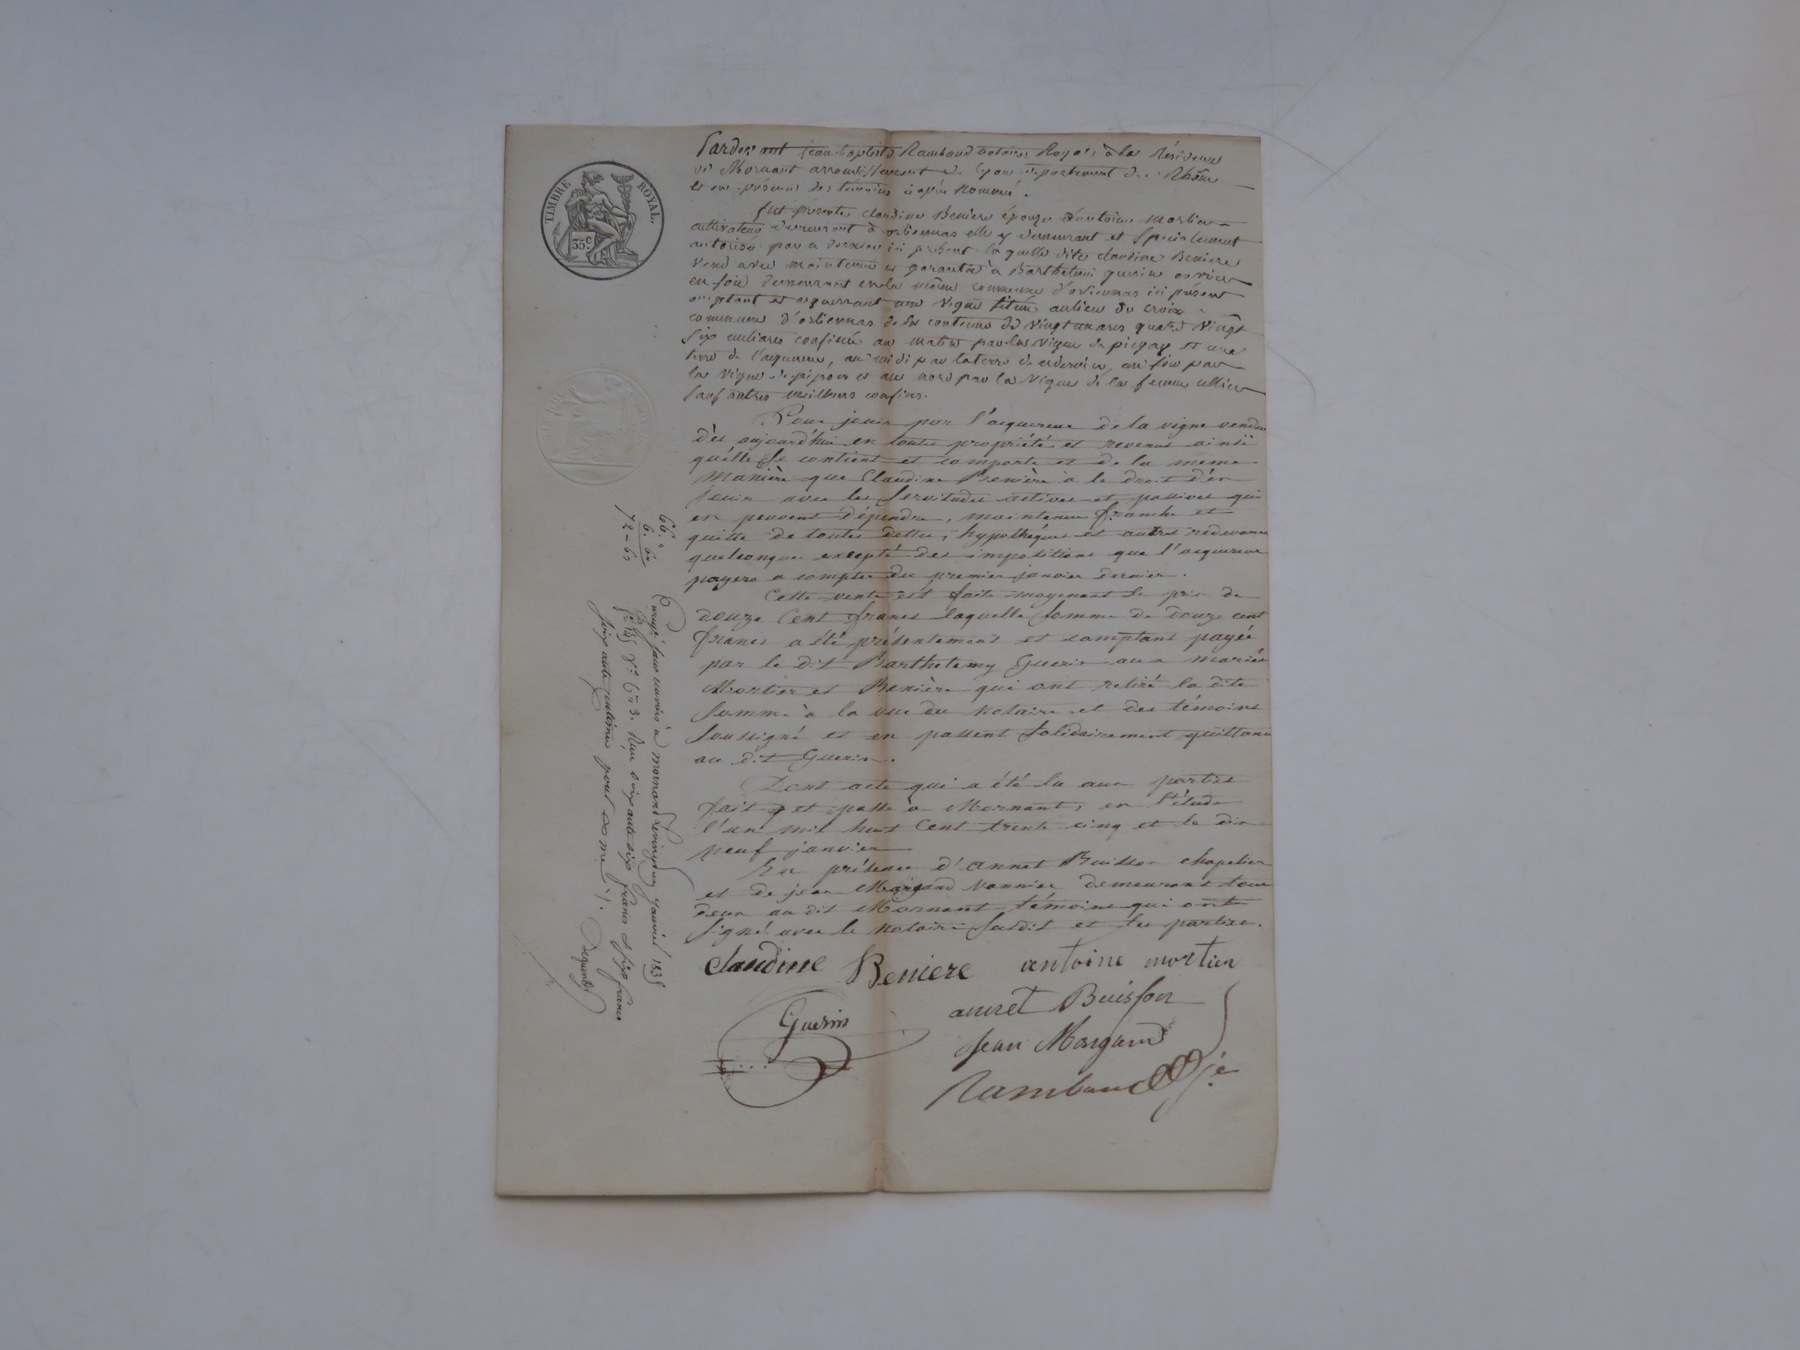 TIMBRE ROYAL.
35c
Pardevant jean baptiste Rambaud notaire Royal à la Résidence
de Mornant arrondissement de Lyon département du Rhône
et en présence des témoins ci après nommé.
fut présente claudine Beniere épouse d'antoine Mortier
cultivateur demeurant à orliennas elle y demeurant et spécialement
autorisée par ce dernier ici présent laquelle dite claudine Beniere
vend avec maintenue et garantie à Barthelemi guerin ouvrier
en soie demeurant en la même commune d'orliennas ici présent
acceptant et acquerrant une vigne située au lieu du croix
commune d'orliennas de la contenue de vingt un ares quatre vingt
six centiares confinée au matin par la vigne de pigay et une
terre de l'acquereur, au midi par la terre de au soir par
la vigne de et au nord par la vigne de la femme
sauf autres meilleurs confins.
Pour jouir par l'acquereur de la vigne vendue
dès aujourd'hui en toute propriété et revenus ainsi
qu'elle se contient et comporte et de la même
manière que Claudine Benière a le droit d'en
jouir avec les servitudes actives et passives qui
en peuvent dépendre, maintenue franche et
quitte de toutes dettes, hypothéques et autres redevances
quelconques excepté des impositions que l'acquereur
payera a compter du premier janvier dernier.
Cette vente est faite moyenant le prix de
douze Cent francs laquelle somme de douze cent
francs a été présentement et comptant payée
par le dit Barthelemy Guerin aux mariés
Mortier et Benière qui ont retiré la dite
somme à la vue du notaire et des témoins
soussigné et en passent solidairement quittance
au dit Guerin.
Dont acte qui a été lu aux parties
fait et passé à Mornant, en l'étude
l'an mil huit Cent trente cinq et le dix
neuf janvier.
En présence d'annet Buisson chapelier
et de jean Margand vannier demeurant tous
deux au dit Mornant témoins qui ont
signé avec le notaire susdit et les parties.
claudine Beniere antoine mortier
Guerin annet Buisson
jean Margand
Rambaud
66. "
6. 60
72 - 60
Enregistré à mornant le vingt janvier 1835
Reçu soixante six francs et six francs
soixante centimes pour